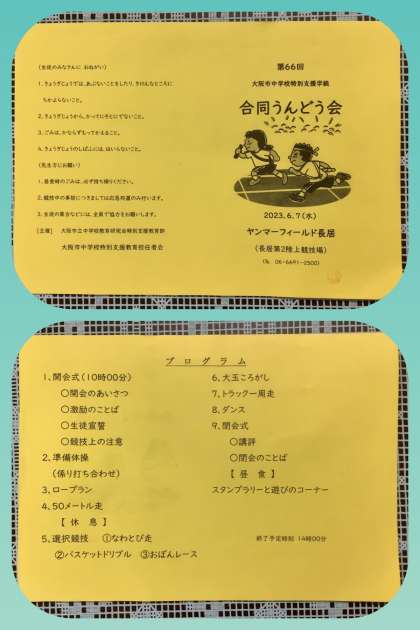 (生徒のみなさんに おねがい)
1. きょうぎじょうでは、あぶないことをしたり、きけんなところに
ちかよらないこと。
2. きょうぎじょうから、かってにそとにでないこと。
3. ごみは、かならずもってかえること。
4. きょうぎじょうのしばふには、はいらないこと。
(先生方にお願い)
1. 昼食時のごみは、必ず持ち帰りください。
2. 競技中の事故につきましては応急処置のみ行います。
3. 生徒の集合などには、全員で協力をお願いします。
[主催] 大阪市立中学校教育研究会特別支援教育部
大阪市中学校特別支援教育担任者会
第66回
大阪市中学校特別支援学級
合同うんどう会
2023.6.7(水)
ヤンマーフィールド長居
(長居第2陸上競技場)
(℡ 06-6691-2500)
プログラム
1. 開会式(10時00分)
○開会のあいさつ
○激励のことば
○生徒宣誓
○競技上の注意
2. 準備体操
(係り打ち合わせ)
3. ロープラン
4. 50メートル走
【休 息】
5. 選択競技 ①なわとび走
②バスケットドリブル ③おぼんレース
6. 大玉ころがし
7. トラック一周走
8. ダンス
9. 閉会式
○講評
○閉会のことば
【昼 食】
スタンプラリーと遊びのコーナー
終了予定時刻 14時00分